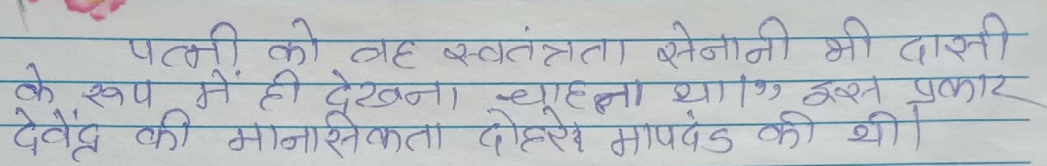 पत्नी को वह स्वतंत्रता सेनानी भी दासी
के रूप में ही देखना चाहता था।" इस प्रकार
देवेंद्र की मानसिकता दोहरे मापदंड की थी।